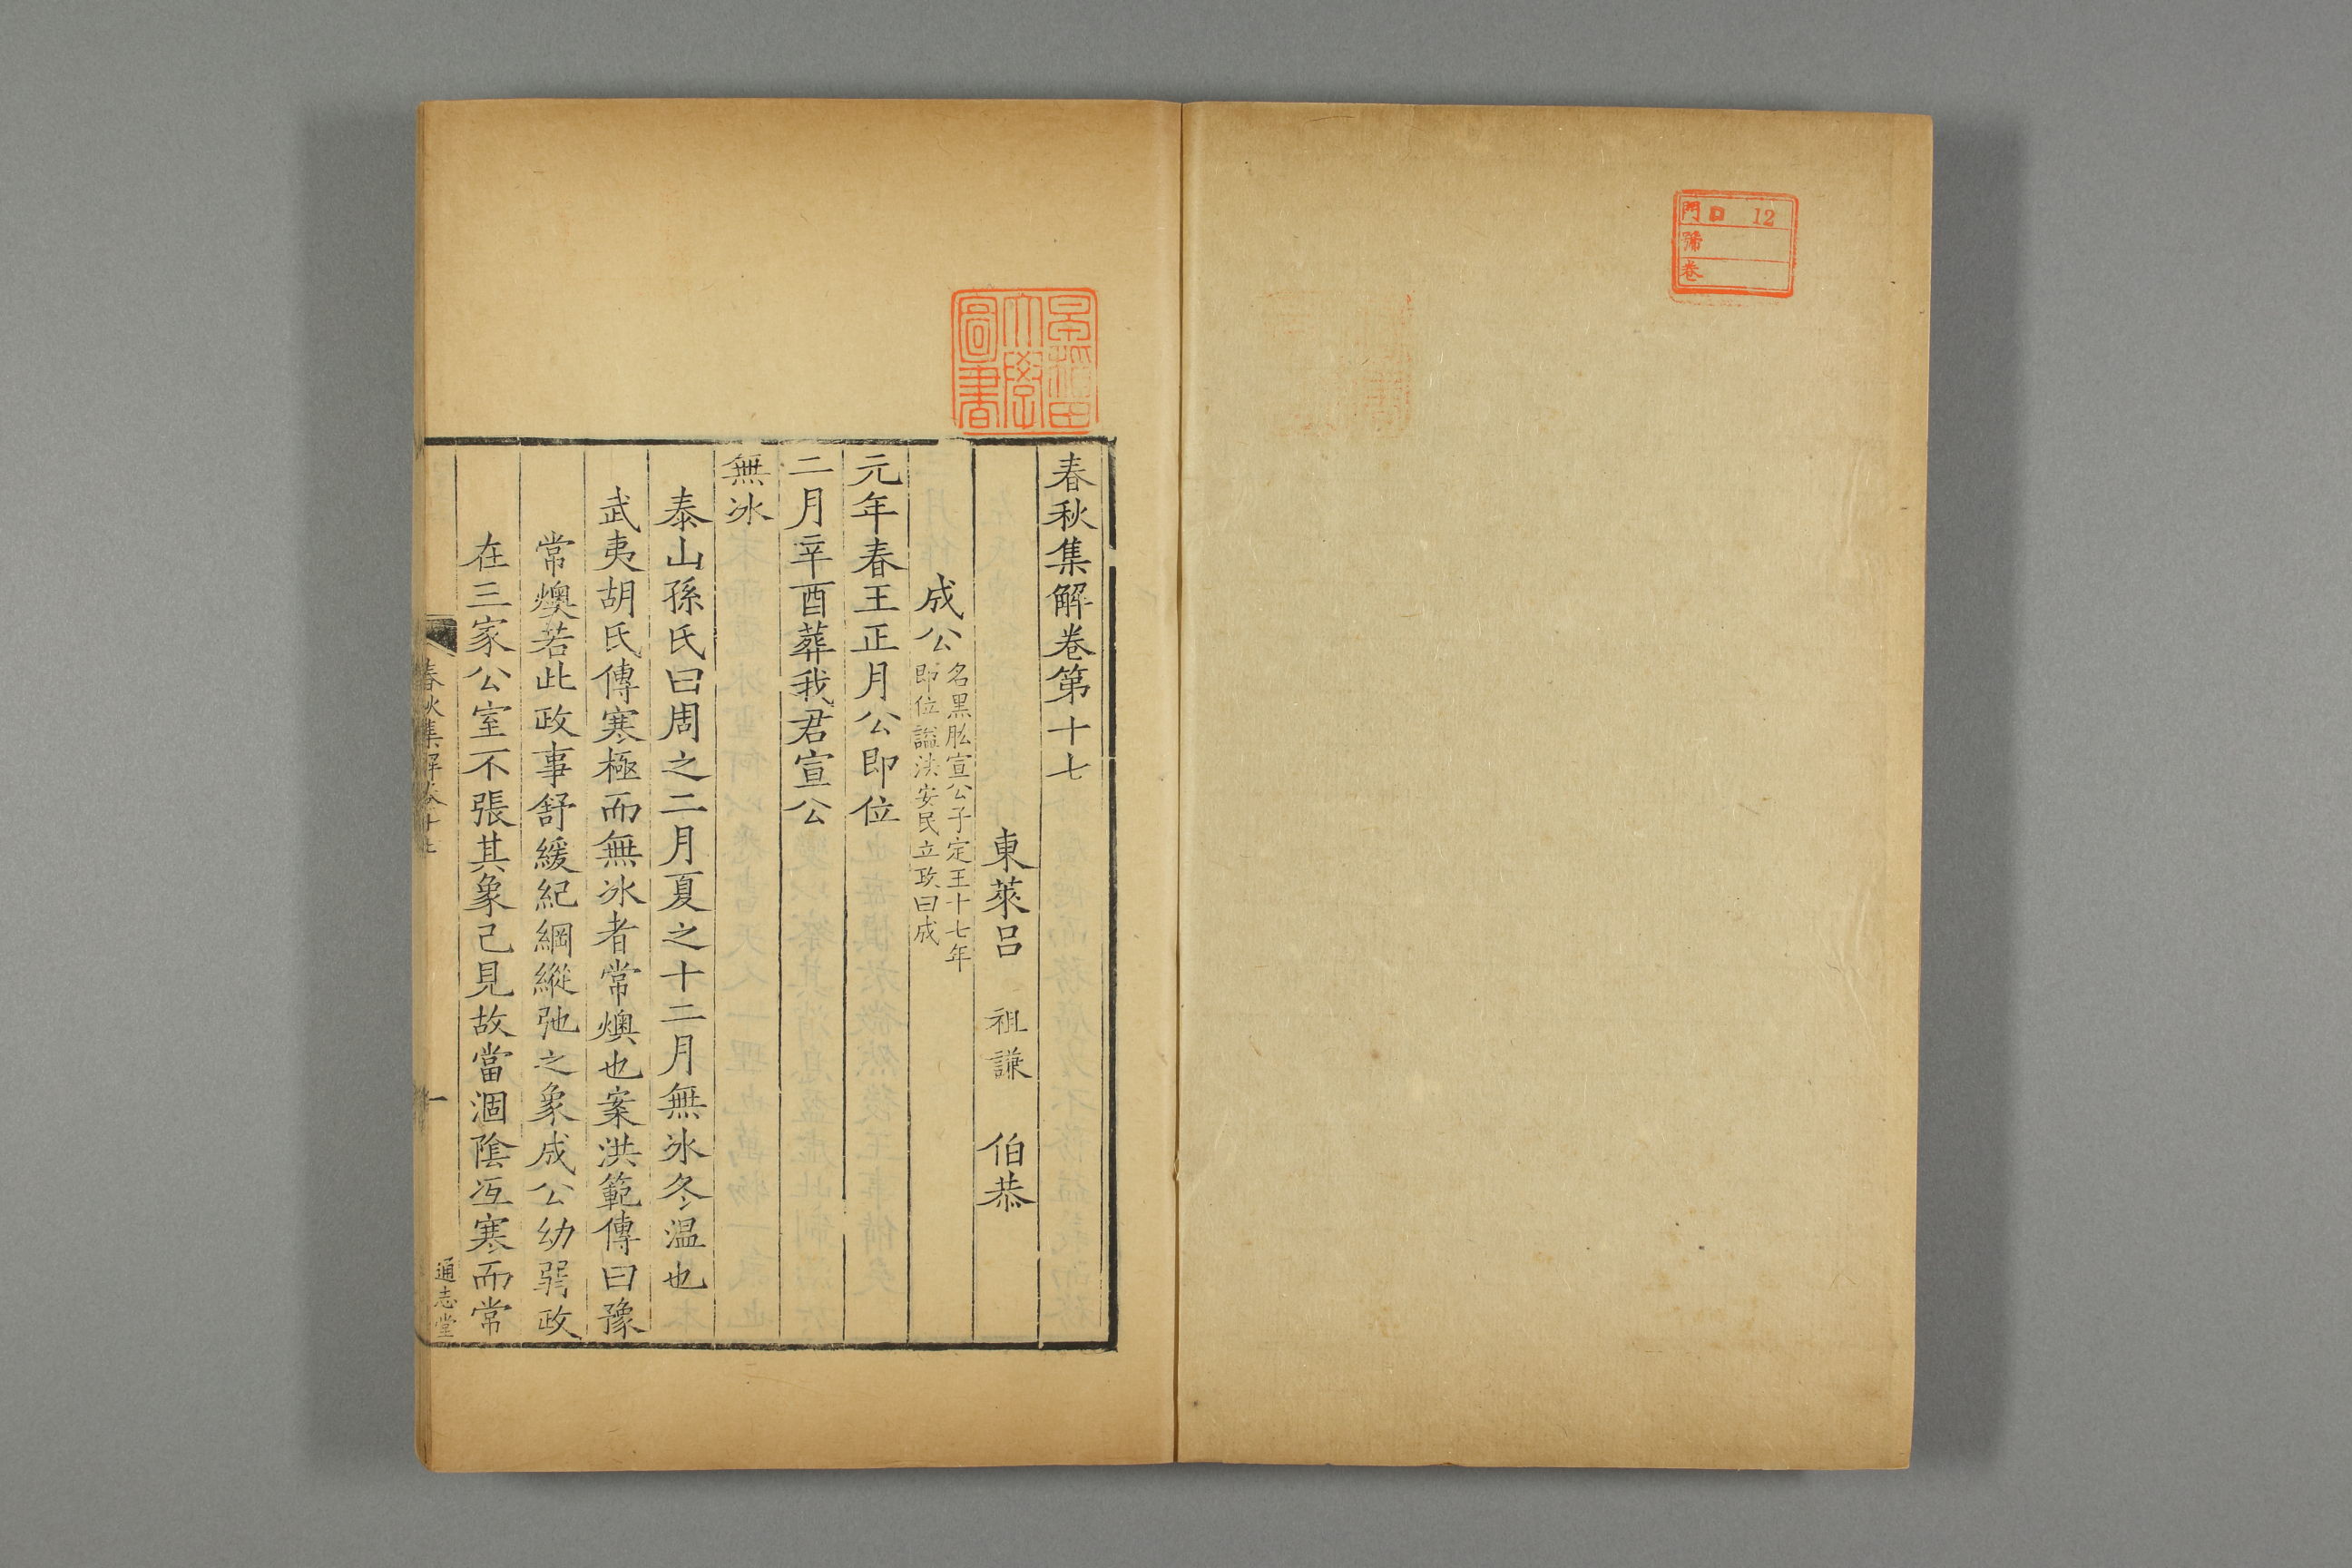 門 口 12
號
卷
早稲田
大學
圖書
春秋集解卷第十七
東萊呂 祖謙 伯恭
成公 名黑肱宣公子定王十七年
即位諡法安民立政曰成
元年春王正月公即位
二月辛酉葬我君宣公
無冰
泰山孫氏曰周之二月夏之十二月無冰冬温也
武夷胡氏傳寒極而無冰者常燠也案洪範傳曰豫
常燠若此政事舒緩紀綱縱弛之象成公幼弱政
在三家公室不張其象己見故當涸陰冱寒而常
春秋集解卷十七
一
通志堂